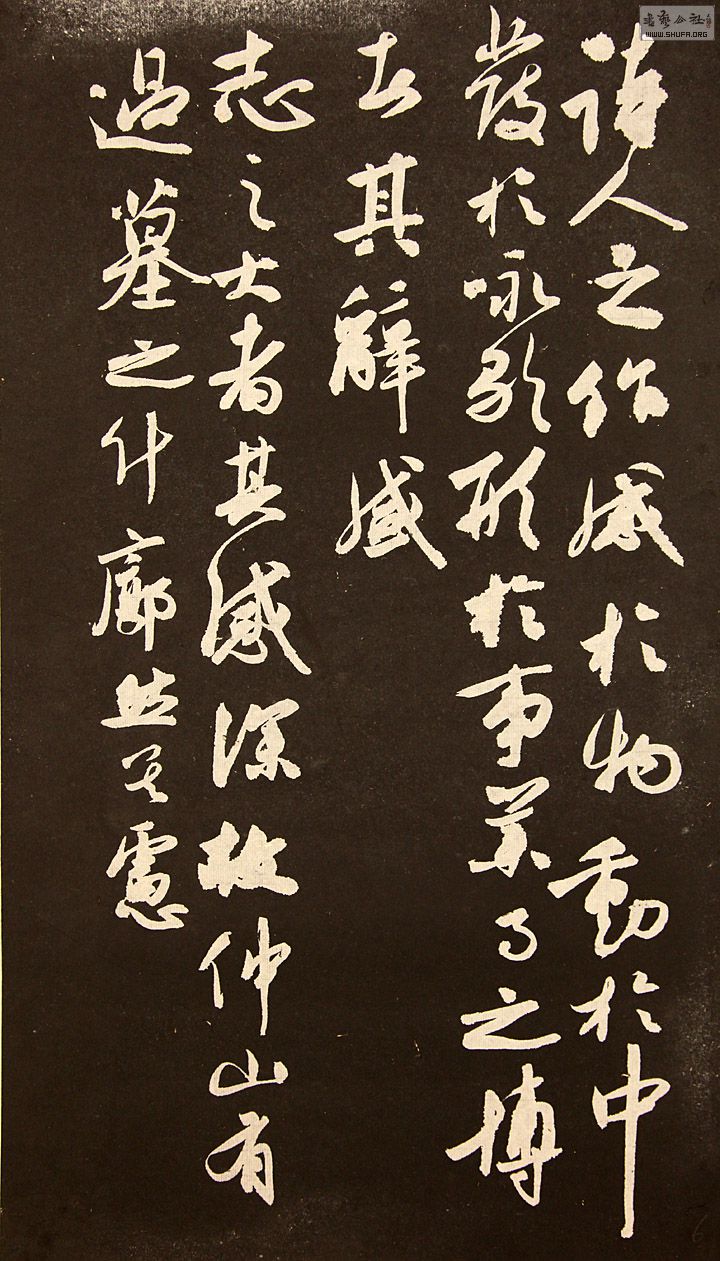 诗人之作感於物動於中
發於咏歌形於事業事之博
者其辭盛
志之大者其感深故仲山有
過墓之什廓然其慮
書藝公社
WWW.SHUFA.ORG